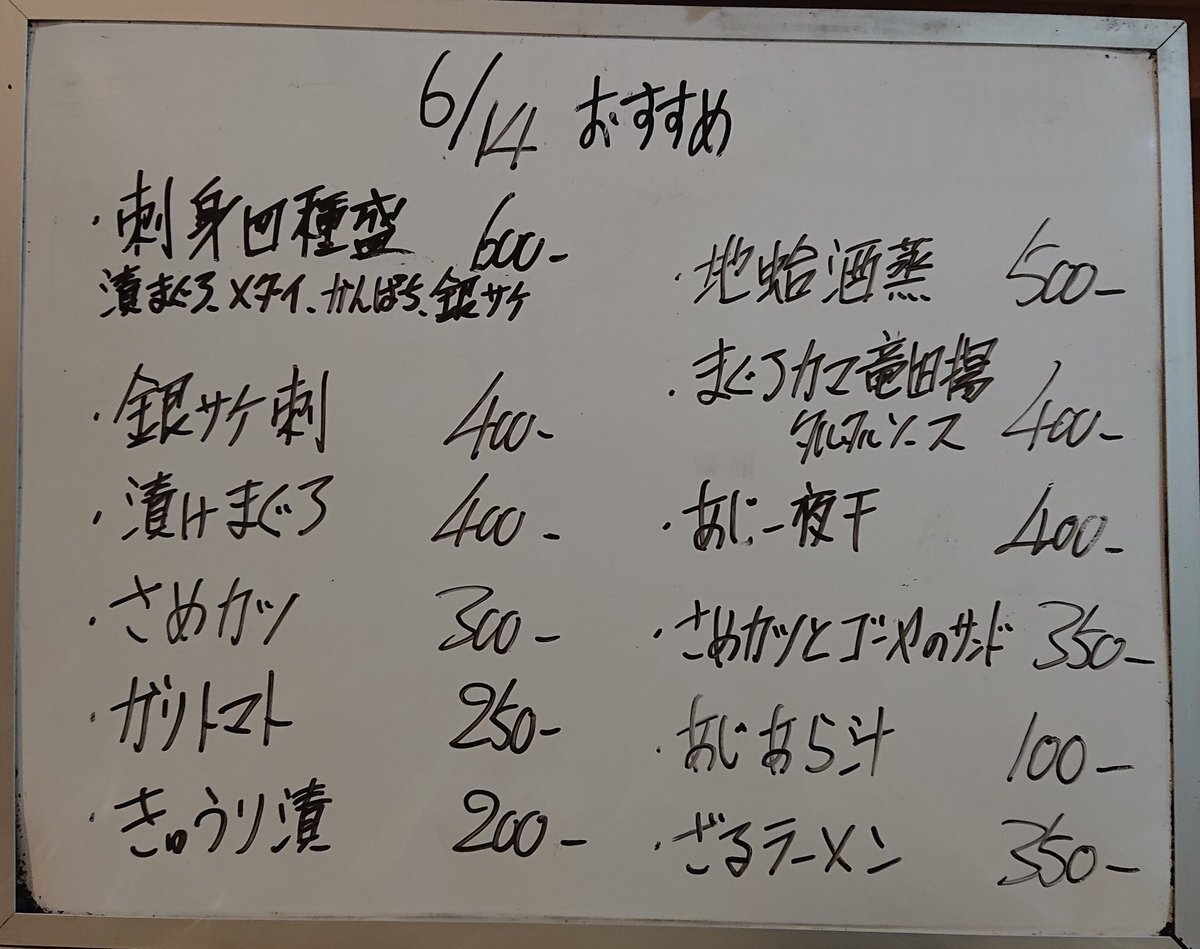 6/14 おすすめ
・刺身四種盛 600-
漬まぐろ、メダイ、かんぱち、銀サケ
・銀サケ刺 400-
・漬けまぐろ 400-
・さめカツ 300-
・ガリトマト 250-
・きゅうり漬 200-
・地蛤酒蒸 500-
・まぐろカマ竜田揚
タルタルソース 400-
・あじ一夜干 400-
・さめカツとゴーヤのサンド 350-
・あじあら汁 100-
・ざるラーメン 350-